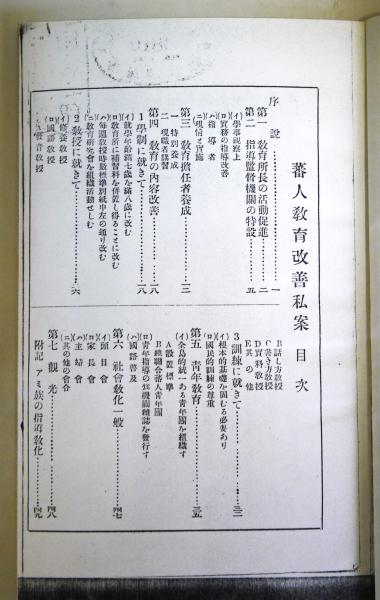 蕃人教育改善私案 目次
序説……一
第一 教育所長の活動促進……二
第二 指導監督機關の特設……五
(イ)學事視察上
(ロ)實務の指導改善
(ハ)指導者
(ニ)現情と實施
第三 教育擔任者養成……一三
一 特別養成
二 現職者講習
第四 教育の內容改善……一八
1 學制に就きて……一八
(イ)就學年齡滿七歲を滿八歲に改む
(ロ)教育所に補習科を併置し得ることに改む
(ハ)每週教授時數標準別紙中左の通り改む
(ニ)教育研究會を組織活動せしむ
2 教授に就きて……六
(イ)修養教授
(ロ)國語教授
A發音教授
B話し方教授
C書き方教授
D實科教授
E其の他
3 訓練に就きて……三二
(イ)根本的基礎を固むる必要あり
(ロ)國民的訓練の尊重
第五 靑年教育……三五
(イ)全島的統一ある靑年團を組織す
A設置標準
B總聯合蕃人靑年團
(ロ)靑年指導の爲機關雜誌を發行す
(ハ)國語普及
第六 社會教化一般……四七
(イ)頭目會
(ロ)家長會
(ハ)主婦會
(ニ)其の他の會合
第七 觀光……四八
附記 アミ族の指導教化……四九